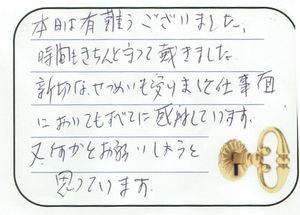 本日は有難うございました。
時間もきちんと守って戴きました
新切なせつめいも受けました仕事面
においてもすべてに感謝しています。
又何かとお願いしようと
思っています。